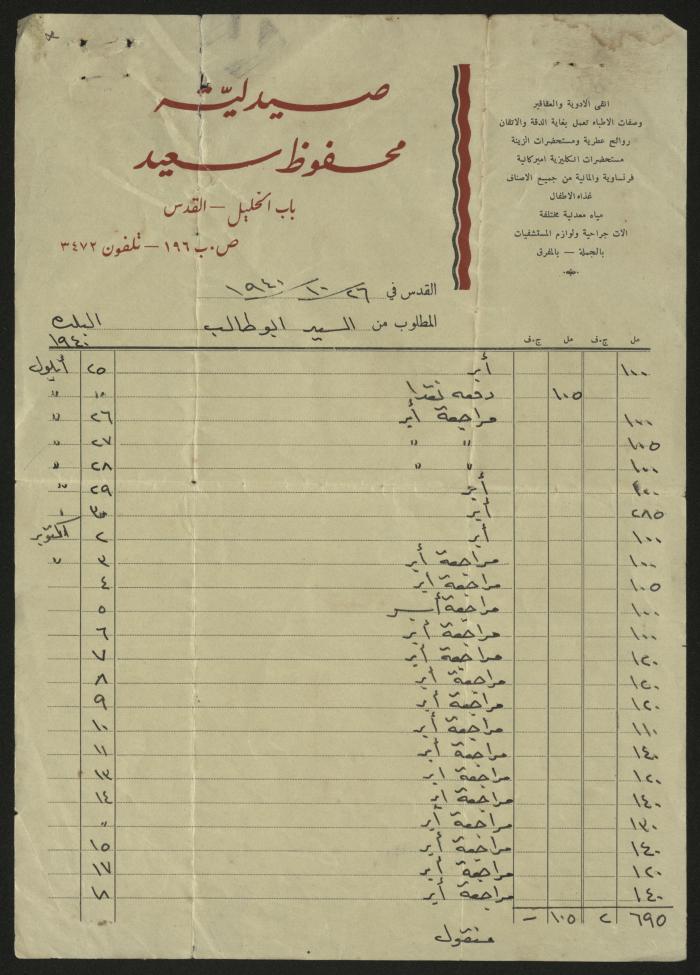 صيدليّة
محفوظ سعيد
باب الخليل — القدس
ص.ب ١٩٦ — تلفون ٣٤٧٢
انقى الادوية والعقاقير
وصفات الاطباء تعمل بغاية الدقة والاتقان
روائح عطرية ومستحضرات الزينة
مستحضرات انكليزية اميركانية
فرنساوية والمانية من جميع الاصناف
غذاء الاطفال
مياه معدنية مختلفة
الات جراحية ولوازم المستشفيات
بالجملة — بالمفرق
القدس في ٢٦ / ١٠ / ١٩٤٠
المطلوب من السيد ابو طالب
١٩٤٠
مل ج.ف مل ج.ف
١٠٠ أبر ٢٥ أيلول
١٠٥ دفعه نقدا " "
١٠٠ مراجعة أبر ٢٦ "
١٠٥ " " ٢٧ "
١٠٠ " " ٢٨ "
أبر ٢٩ "
٢٨٥ أبر ٣٠ "
١٠٠ أبر ٢ اكتوبر
١٠٠ مراجعة أبر ٣ "
١٠٥ مراجعة ابر ٤
١٠٠ مراجعة أبر ٥
١٠٠ مراجعة أبر ٦
١٢٠ مراجعة أبر ٧
١٢٠ مراجعة أبر ٨
١٢٠ مراجعة أبر ٩
١١٠ مراجعة أبر ١٠
١٤٠ مراجعة أبر ١١
١٢٠ مراجعة ابر ١٣
١٤٠ مراجعة ابر ١٤
١٣٠ مراجعة أبر "
١٤٠ مراجعة أبر ١٥
١٢٠ مراجعة أبر ١٧
١٤٠ مراجعة أبر ١٨
٦٩٥ ٢ ١٠٥ —
منقول